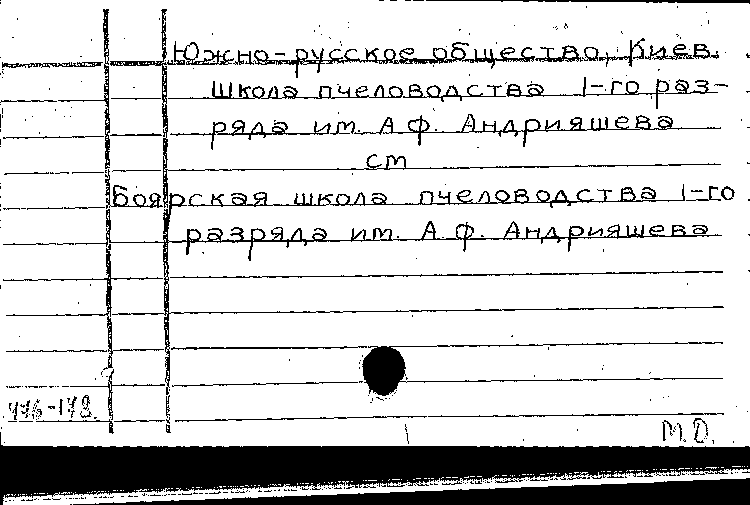 Южно-русское общество, Киев.
Школа пчеловодства 1-го раз-
ряда им. А.Ф. Андрияшева
см
Боярская школа пчеловодства 1-го
разряда им. А.Ф. Андрияшева
M.D.